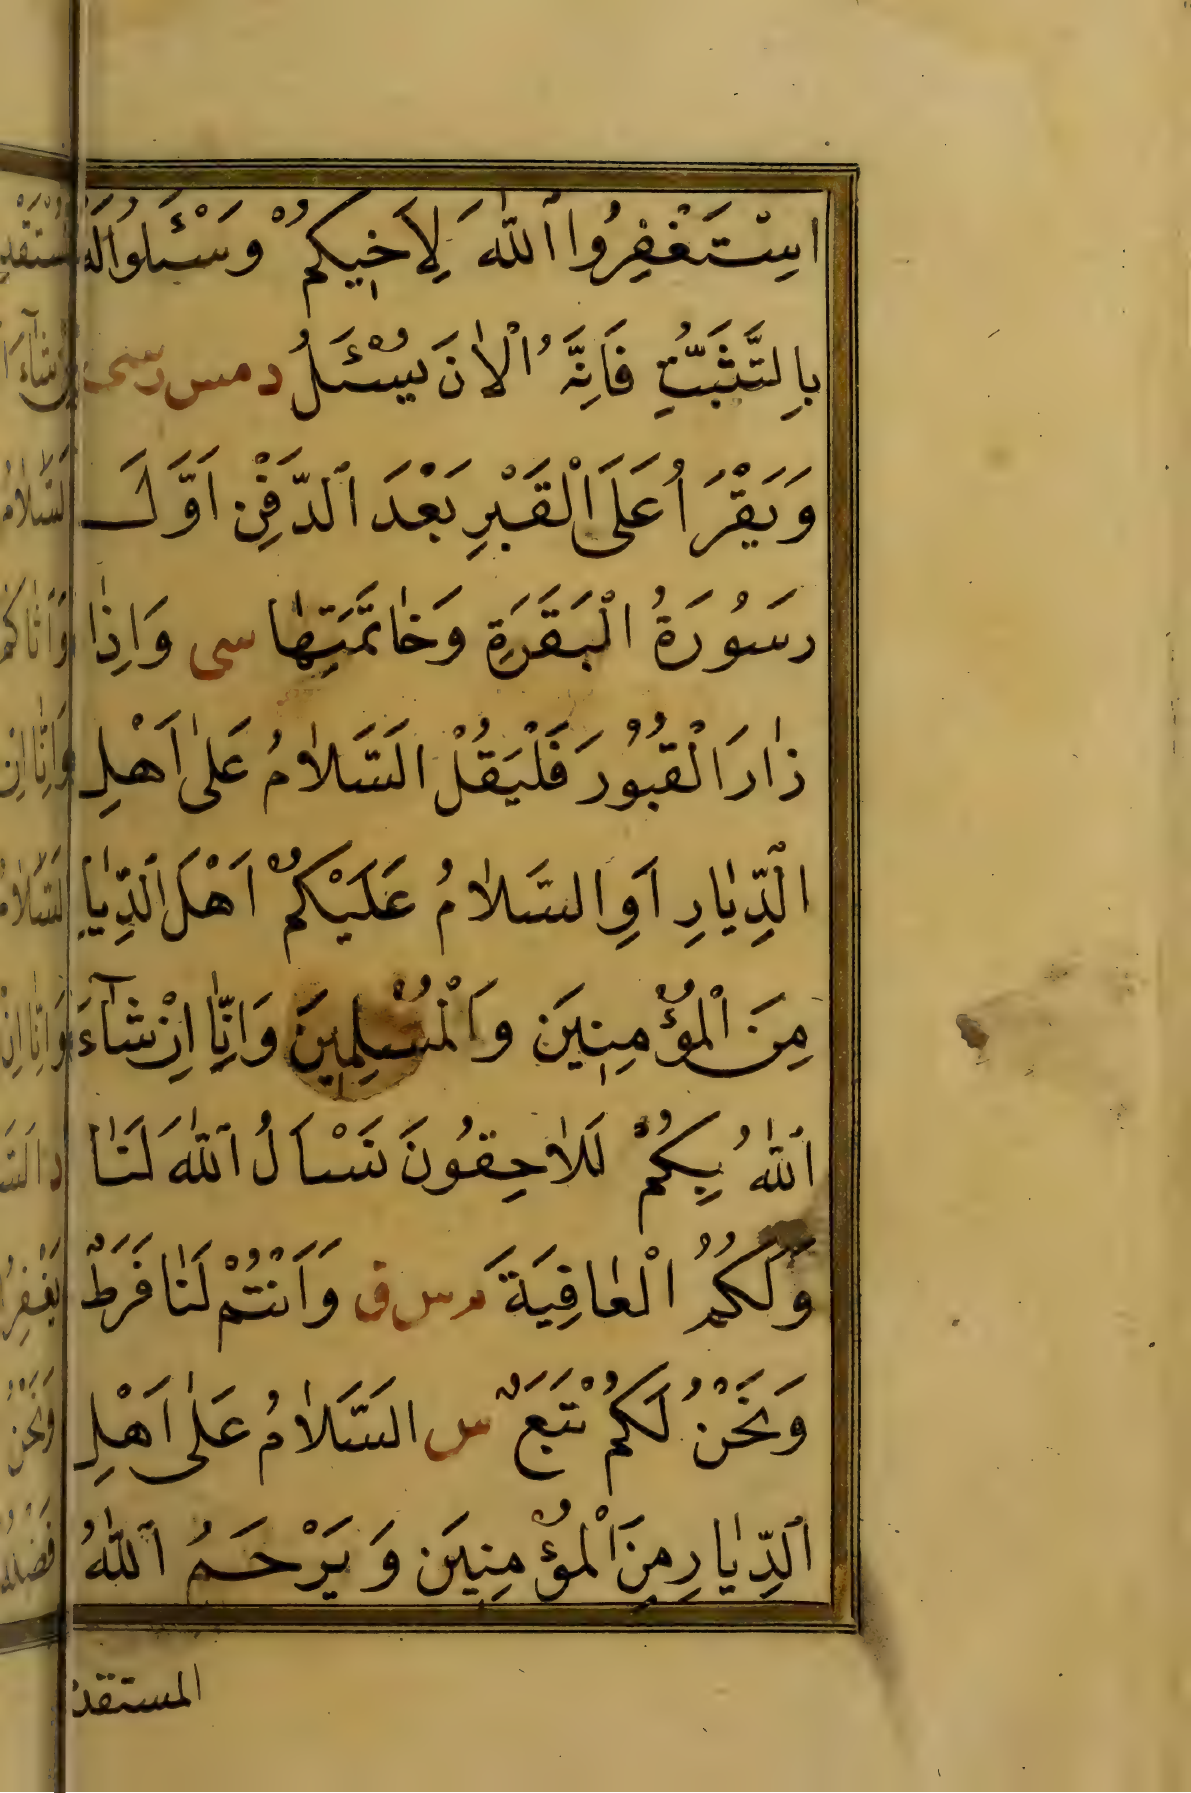 اِسْتَغْفِرُوا اللّٰهَ لِاَخِيكُمْ وَسْئَلُوا لَهُ
بِالتَّثَبُّتِ فَاِنَّهُ الْاٰنَ يُسْئَلُ د مس ر سى
وَيَقْرَاُ عَلَى الْقَبْرِ بَعْدَ الدَّفْنِ اَوَّلَ
سُورَةُ الْبَقَرَةِ وَخَاتَمَتِهَا سى وَاِذَا
زَارَ الْقُبُورَ فَلْيَقُلْ اَلسَّلَامُ عَلٰى اَهْلِ
الدِّيَارِ اَوِ السَّلَامُ عَلَيْكُمْ اَهْلَ الدِّيَارِ
مِنَ الْمُؤْمِنِينَ وَالْمُسْلِمِينَ وَاِنَّا اِنْ شَآءَ
اللّٰهُ بِكُمْ لَلَاحِقُونَ نَسْاَلُ اللّٰهَ لَنَا
وَلَكُمُ الْعَافِيَةَ م س ق وَاَنْتُمْ لَنَا فَرَطٌ
وَنَحْنُ لَكُمْ تَبَعٌ س اَلسَّلَامُ عَلٰى اَهْلِ
الدِّيَارِ مِنَ الْمُؤْمِنِينَ وَيَرْحَمُ اللّٰهُ
المستقد